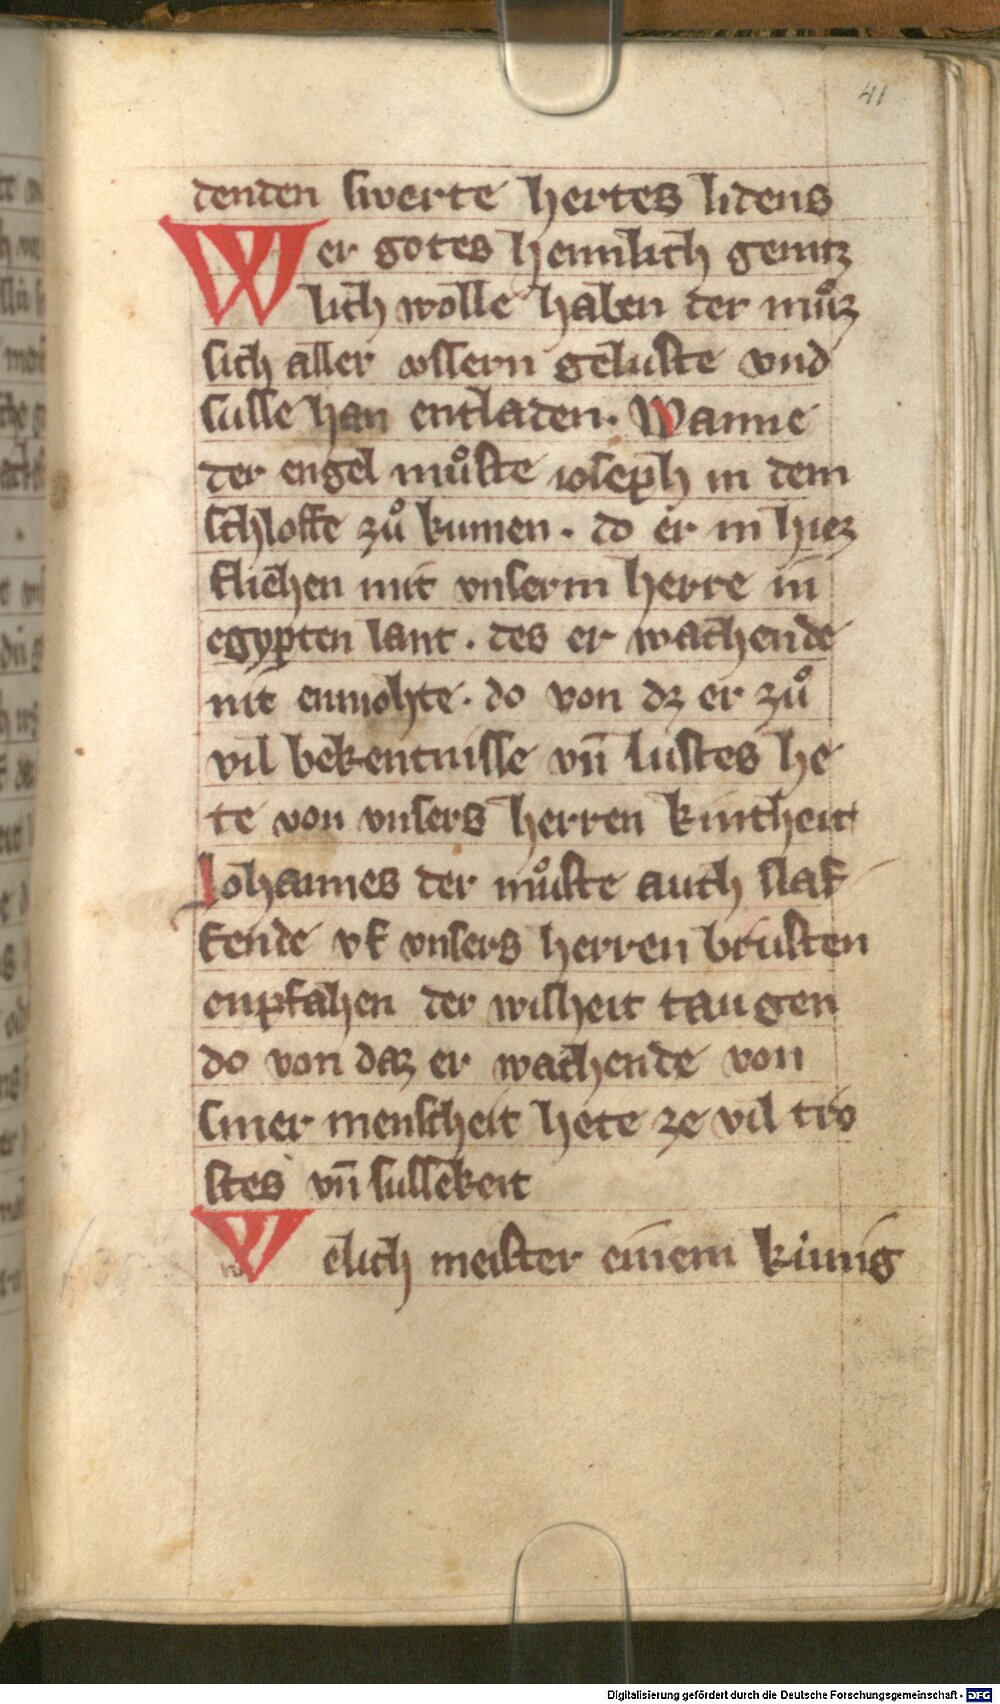 41
denden swerte hertes lidens
Wer gotes heimlich genntz
lich wolle haben der muͦz
sich aller vssern geluste vnd
susse han entladen. Wanne
der engel muͦste ioseph in dem
schloffe zuͦ kumen. do er in hiez
fliehen mit vnserm herre in
egypten lant. des er wachende
nit enmohte. do von dz er zuͦ
vil bekentnisse vn̄ lustes he
te von vnsers herren kintheit
Johannes der muͦste auch slaf
fende vf vnsers herren brusten
enpfahen der wisheit taugen
do von daz er wachende von
siner menscheit hete ze vil tro
stes vn̄ sussekeit
Welich meister einem kúnig
Digitalisierung gefördert durch die Deutsche Forschungsgemeinschaft - DFG